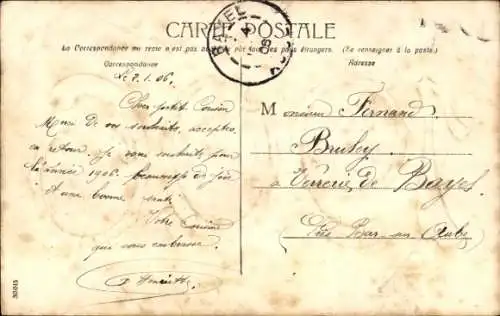 CARTE POSTALE
La Correspondance au recto n'est pas acceptée par tous les pays étrangers. (Se renseigner à la poste)
Correspondance
Adresse
BAYEL
06
Le 2.1.06.
Cher petit Cousin
Merci De vos souhaits, acceptes
en retour, je vous souhaite pour
l'année 1906. beaucoup de joie
et une bonne santé
Votre Cousine
qui vous embrasse
Monsieur Fernand
Bruley
à Verrerie de Bayel
Près Bar-sur-Aube
30815